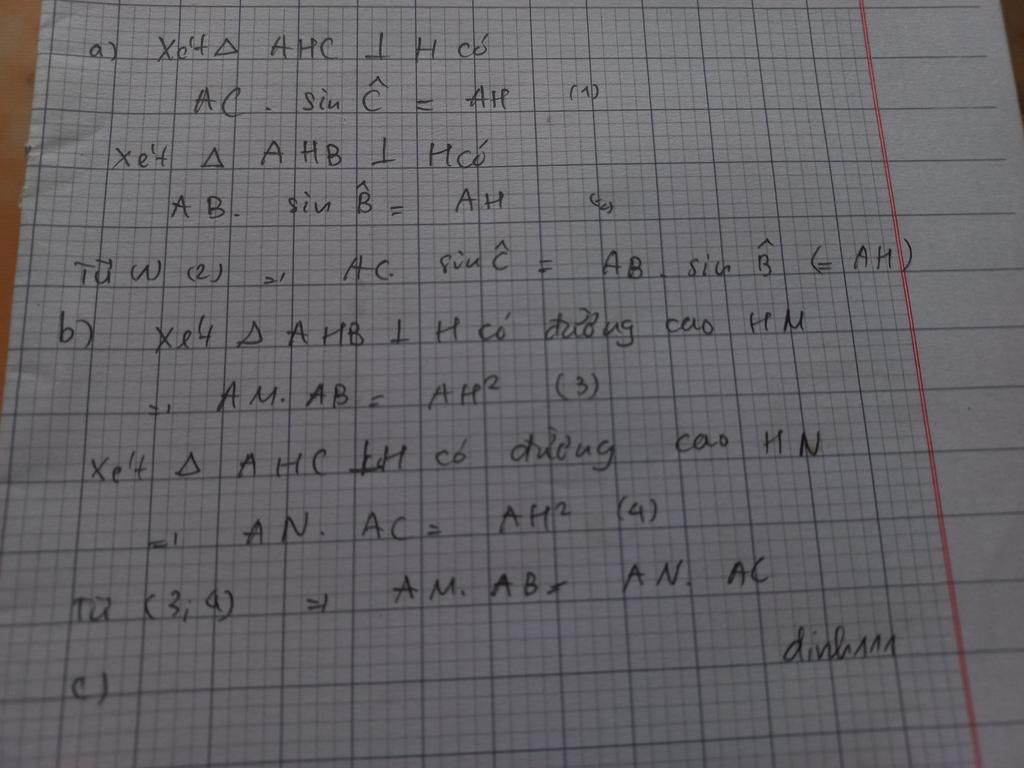 a) Xét Δ AHC ⊥ H có
AC. sin Ĉ = AH (1)
Xét Δ AHB ⊥ H có
AB. sin B̂ = AH
Từ (1) (2) => AC. sin Ĉ = AB. sin B̂ (= AH)
b) Xét Δ AHB ⊥ H có đường cao HM
=> AM. AB = AH² (3)
Xét Δ AHC ⊥ H có đường cao HN
=> AN. AC = AH² (4)
Từ (3; 4) => AM. AB = AN. AC
c)